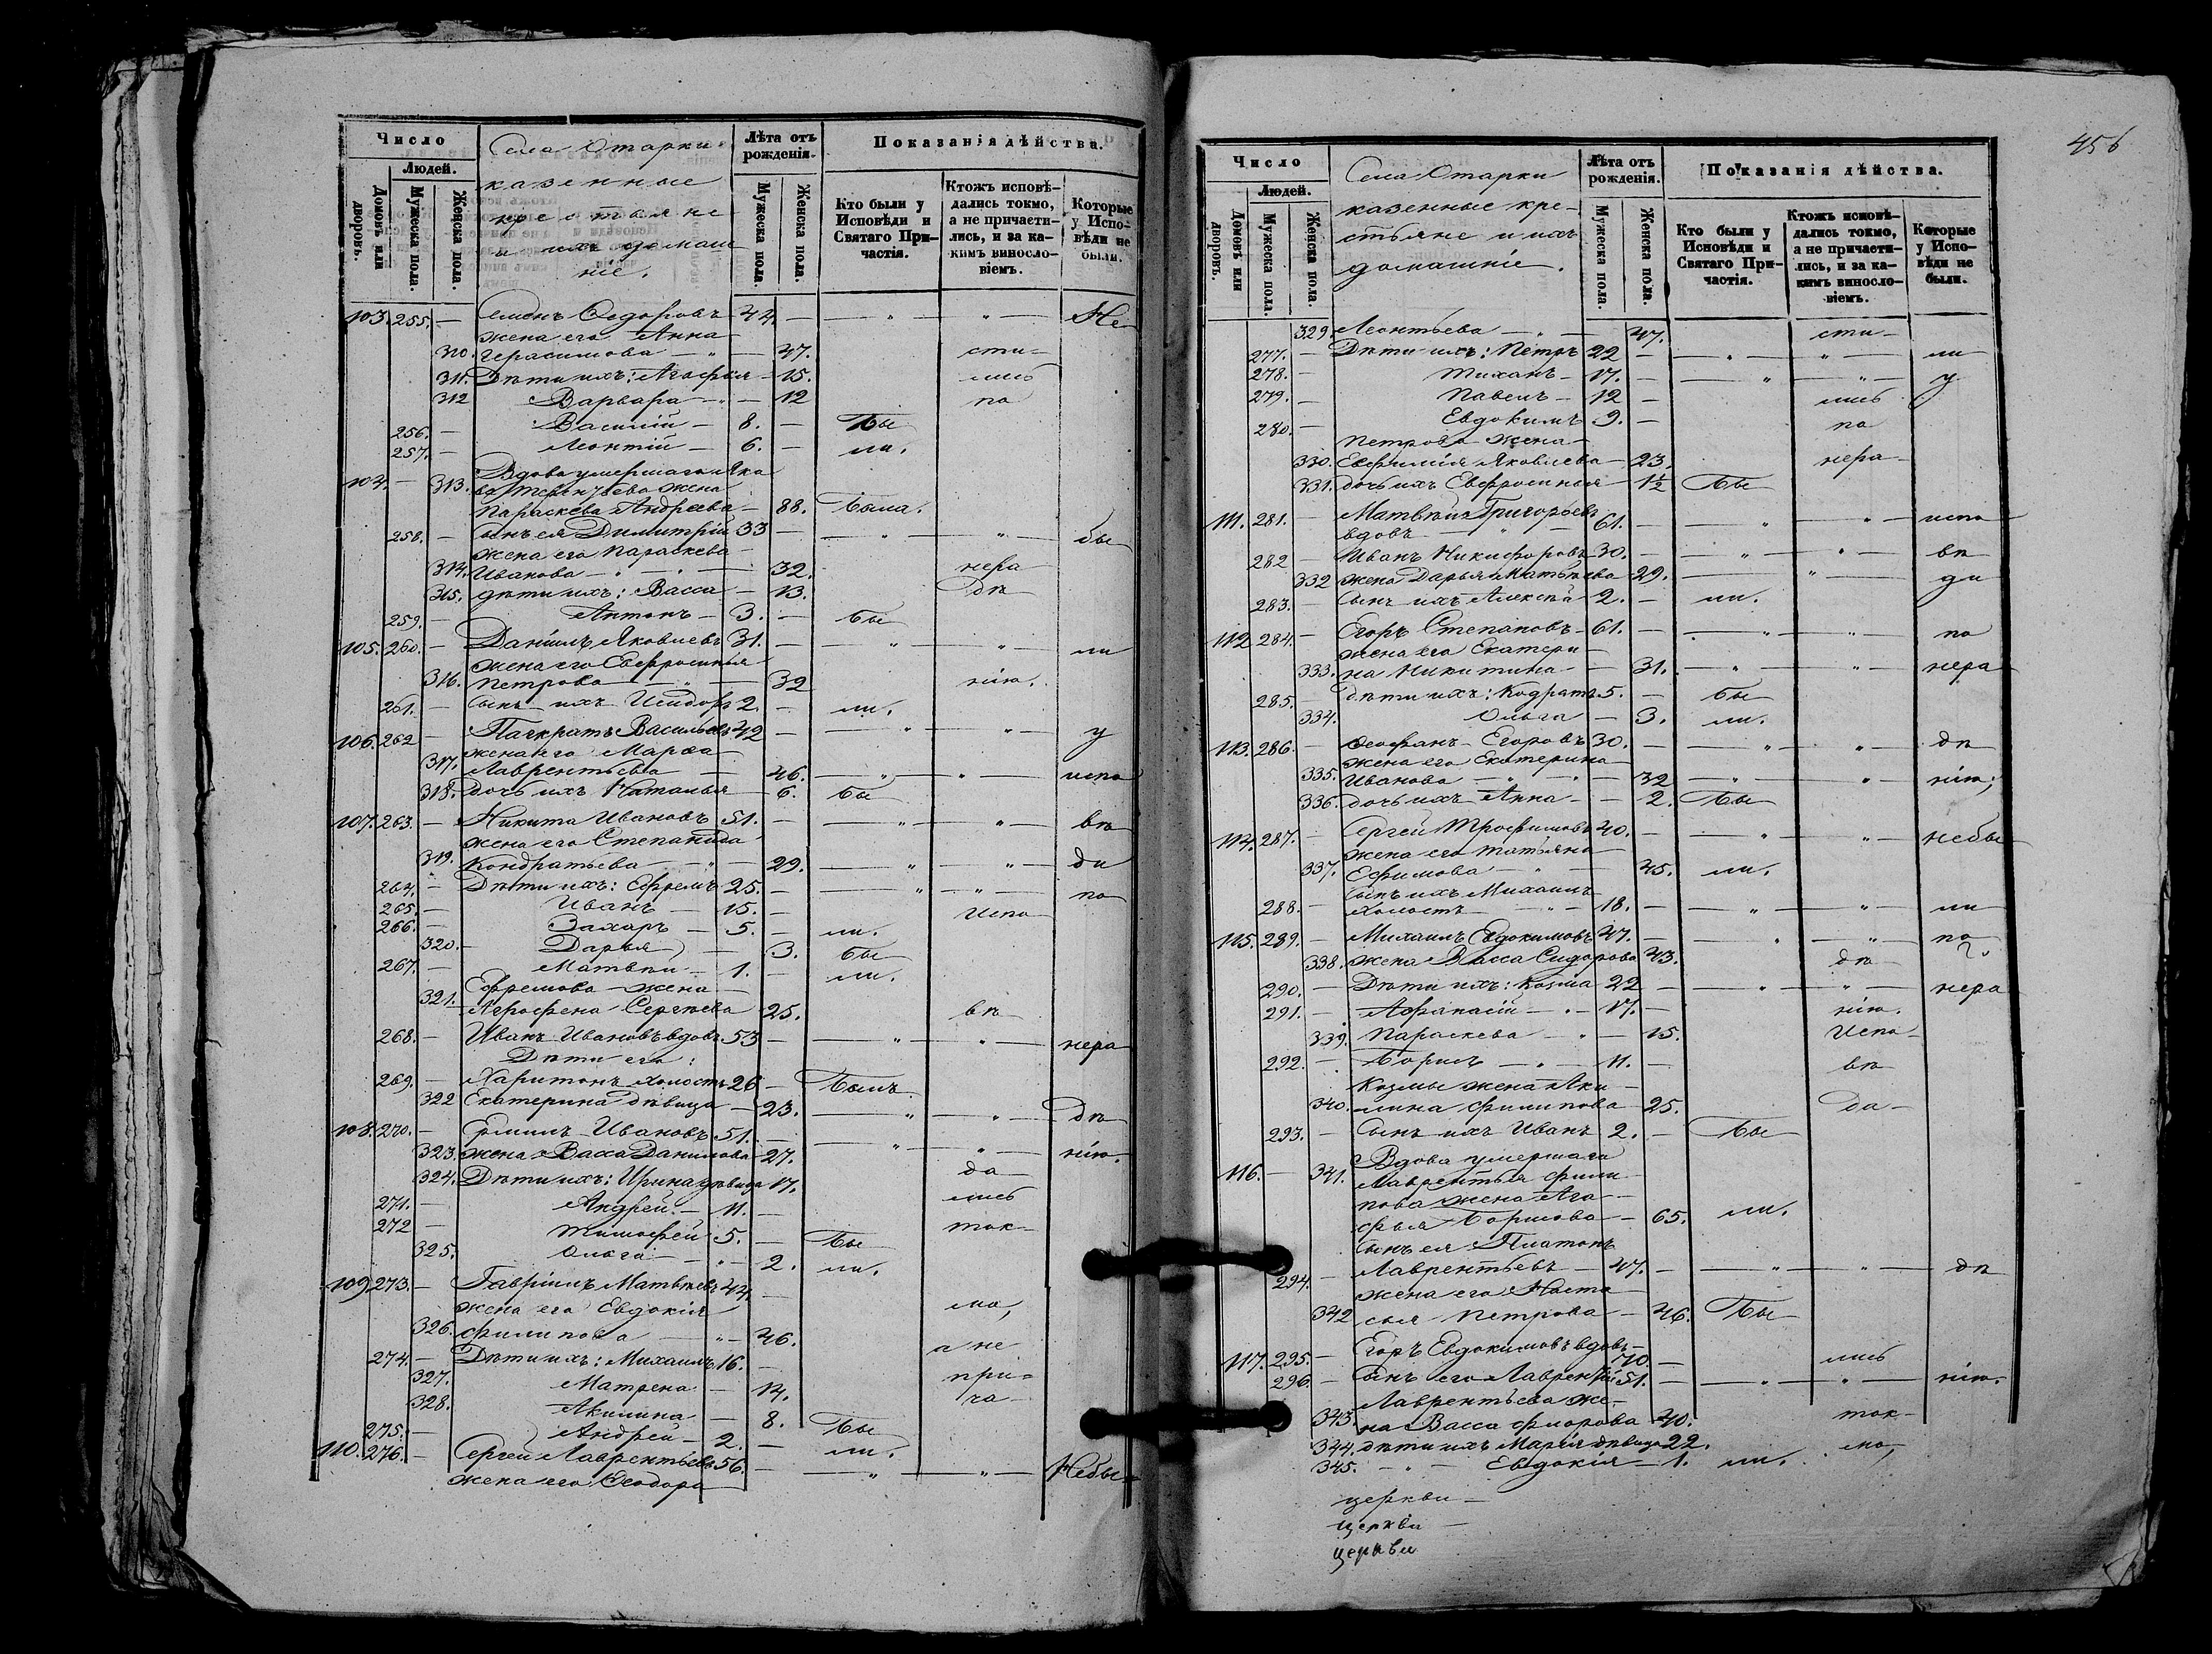 Число
Людей.
Домовъ или дворовъ.
Мужеска пола.
Женска пола.
Села Отарки
казенные
крестьяне
и ихъ домаш
ніе.
Лѣта отъ рожденія.
Мужеска пола.
Женска пола.
Показанія дѣйства.
Кто были у Исповѣди и Святаго Причастія.
Ктожъ исповѣдались токмо, а не причастились, и за какимъ винословіемъ.
Которые у Исповѣди не были.
103. 255. — Семенъ Ѳедоровъ 44. — — " — " — Не
жена его Анна
310. Герасимова — " — 47. сти-
311. Дѣти ихъ: Агафья — 15. лись
312 Варвара — " — 12 по
256. — Василій — 8. — Бы
257. — Леонтій — 6. — ли.
Вдова умершаго Яко
104. — 313. ва Терентьева жена
Параскева Андреева — 88. Была.
258. — Сынъ ея Димитрій 33 — — " — " — бы
жена его Параскева
314. Иванова — " — 32. нера
315. дѣти ихъ: Васса — 13. дѣ
259. — Антонъ — 3. — бы
105. 260. — Даніилъ Яковлевъ 31. — — " — " — ли
жена его Евфросинья
316. Петрова — " — 32 нію.
261. — Сынъ ихъ Исидоръ 2. — ли.
106. 262 — Панкратъ Васильевъ 42 — — " — " — у
жена его Марѳа
317. Лаврентьева — 46. — " — " — испо
318. дочь ихъ Наталья — 6. бы
107. 263. — Никита Ивановъ 51. — — " — " — вѣ
жена его Степанида
319. Кондратьева — " — 29. — " — " — ди
264. — Дѣти ихъ: Ефремъ 25. — — " — " — по
265. — Иванъ — 15. — Испо
266. — Захаръ — 5. — ли.
320. — Дарья — 3. бы
267. — Матвѣй — 1. — ли.
Ефремова жена —
321. Агрофена Сергѣева 25. вѣ
268. — Иванъ Ивановъ вдовъ 53 — — " — " — нера
Дѣти его:
269. — Харитонъ холостъ 26 — Былъ
322 Екатерина дѣвица — 23. — " — " — дѣ
108. 270. — Ермилъ Ивановъ 51. —
323. жена Васса Данилова 27. — " — " — нію.
324. Дѣти ихъ: Ирина дѣвица 17. да
271. — Андрей — 11. — лись
272 — Тимофей 5. — ток-
325. Ольга — " — 2. Бы ли.
109. 273. — Гавріилъ Матвѣевъ 44. —
жена его Евдокія мо,
326. Филипова — " — 46.
274. — Дѣти ихъ: Михаилъ 16. — а не
327. Матрена — 14. при-
328. Акилина — 8. ча-
275. — Андрей — 2. — Бы
110. 276. — Сергей Лаврентьевъ 56. — ли. — " — " — Небы-
жена его Ѳеодора
456
Число
Людей.
Домовъ или дворовъ.
Мужеска пола.
Женска пола.
Села Отарки
казенные кре-
стьяне и ихъ
домашніе.
Лѣта отъ рожденія.
Мужеска пола.
Женска пола.
Показанія дѣйства.
Кто были у Исповѣди и Святаго Причастія.
Ктожъ исповѣдались токмо, а не причастились, и за какимъ винословіемъ.
Которые у Исповѣди не были.
329 Леонтьева — " — 47. сти-
277. — Дѣти ихъ: Петръ 22 — — " — " — ли
278. — Тиханъ — 17. — — " — " — у
279. — Павелъ — 12 — лись
280. — Евдокимъ 9. — по
Петрова жена —
330. Евфимія Яковлева — 23. нера
331. дочь ихъ Евфросинья — 1½ Бы
111. 281. — Матвѣй Григорьевъ
вдовъ — 61. — — " — " — испо
282 — Иванъ Никифоровъ 30. — — " — " — вѣ
332 жена Дарья Матвѣева 29. — " — ди
283. — Сынъ ихъ Алексѣй 2. — ли.
112 284. — Егоръ Степановъ — 61. — — " — " — по
жена его Екатери-
333. на Никитина — 31. — " — " — нера
285. — дѣти ихъ: Кодратъ 5. — бы
334. Ольга — 3. ли.
113. 286. — Ѳеофанъ Егоровъ 30. — — " — " — дѣ
жена его Екатерина
335. Иванова — " — 32 — " — " — нію;
336. дочь ихъ Анна — 2. Бы
114. 287. — Сергей Трофимовъ 40. — — " — " — небы
жена его Татьяна
337. Ефимова — " — 45. ли.
Сынъ ихъ Михаилъ
288. — холостъ — " — 18. — — " — " — ли
115. 289. — Михаилъ Евдокимовъ 47. — — " — " — по
338. жена Васса Сидорова 43. дѣ
290. — Дѣти ихъ: Козма 22 — — " — " — нера
291. — Афанасій — " — 17. — нію.
339. Параскева — " — 15. Испо-
292. — Борисъ — " — 11. — вѣ
Козмы жена Аки-
340. лина Филипова — 25. да-
293. — Сынъ ихъ Иванъ 2. — Бы
Вдова умершаго
116. — 341. Лаврентья Фили-
пова жена Ага-
фья Борисова — 65. ли.
Сынъ ея Платонъ
294. — Лаврентьевъ — 47. — — " — " — дѣ
жена его Наста-
342 сья Петрова — 46. Бы
117. 295. — Егоръ Евдокимовъ вдовъ 70 — лись
296. — Сынъ его Лаврентій 51. — — " — " — нію.
Лаврентьева же-
343. на Васса Фиорова 40. ток-
344. дѣти ихъ Марія дѣвица 22. мо,
345. — " — Евдокія — 1. ли.
церкви —
церкви —
церкви